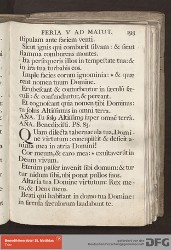 FERIA V AD MATUT. 193
stipulam ante faciem venti.
Sicut ignis qui comburit silvam: & sicut
flamma comburens montes.
Ita persequeris illos in tempestate tua: &
in ira tua turbabis eos.
Imple facies eorum ignominia: & quæ-
rent nomen tuum Domine.
Erubescant & conturbentur in sæculū sæ-
culi: & confundantur, & pereant.
Et cognoscant quia nomen tibi Dominus:
Tu solus Altissimus in omni terra.
AÑA. Tu solus Altissimus super omnē terrā.
AÑA. Benedixisti. PS. 83.
Quam dilecta tabernacula tua, Domi-
ne virtutum: concupiscit & deficit a-
nima mea in atria Domini!
Cor meum, & caro mea: exultaverunt in
Deum vivum.
Etenim passer invenit sibi domum: & tur-
tur nidum sibi, ubi ponat pullos suos.
Altaria tua Domine virtutum: Rex me-
us, & Deus meus.
Beati qui habitant in domo tua Domine:
in sæcula sæculorum laudabunt te.
DFG